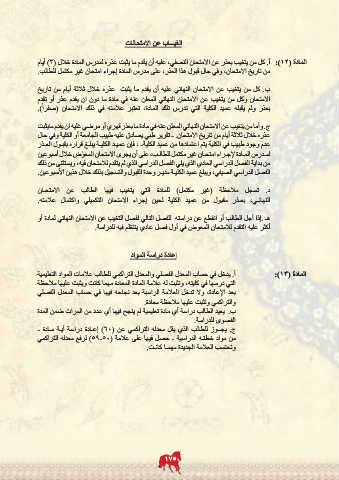 الغياب عن الامتحانات
المادة (١٢): أ. كل من يتغيب بعذر عن الامتحان النصفي، عليه أن يقدم ما يثبت عذره لمدرس المادة خلال (٣) أيام
من تاريخ الامتحان، وفي حال قبول هذا العذر، على مدرس المادة إجراء امتحان غير مكتمل للطالب.
ب. كل من يتغيب عن الامتحان النهائي عليه أن يقدم ما يثبت عذره خلال ثلاثة أيام من تاريخ
الامتحان وكل من يتغيب عن الامتحان النهائي المعلن عنه في مادة ما دون ان يقدم عذر أو تقدم
بعذر ولم يقبله عميد الكلية التي تدرس تلك المادة، تعتبر علامته في ذلك الامتحان (صفراً).
ج. وأما من يتغيب عن الامتحان النهائي المعلن عنه في مادة ما بعذر قهري أو مرضي عليه أن يقدم ما يثبت
عذره خلال ثلاثة أيام من تاريخ الامتحان - تقرير طبي يصادق عليه طبيب الجامعة أو الكلية وفي حال
عدم وجود طبيب في الكلية يتم اعتمادها من عميد الكلية. - فإن عميد الكلية يبلغ قراره بقبول العذر
لمدرس المادة لإجراء امتحان غير مكتمل للطالب، على أن يجري الامتحان المعوض خلال أسبوعين
من بداية الفصل الدراسي العادي الذي يلي الفصل الدراسي الذي لم يتقدم للامتحان فيه، ويستثنى من ذلك
الفصل الدراسي الصيفي، ويبلغ عميد الكلية مدير وحدة القبول والتسجيل بذلك خلال هذين الأسبوعين.
د. تسجل ملاحظة (غير مكتمل) للمادة التي يتغيب فيها الطالب عن الامتحان
النهائي، بعذر مقبول من عميد الكلية لحين إجراء الامتحان التكميلي واكتمال علامته.
هـ. إذا أجل الطالب أو انقطع عن دراسته للفصل التالي لفصل التغيب عن الامتحان النهائي لمادة أو
أكثر عليه التقدم للامتحان المعوض في أول فصل عادي ينتظم فيه للدراسة.
إعادة دراسة المواد
المادة (١٣): أ. يدخل في حساب المعدل الفصلي والمعدل التراكمي للطالب علامات المواد التعليمية
التي درسها في كليته، وتثبت له علامة المادة المعادة مهما كانت ويثبت عليها ملاحظة
بعد الإعادة، ولا تدخل العلامة الراسبة بعد نجاحه فيها في حساب المعدل الفصلي
والتراكمي وتثبت عليها ملاحظة معادة.
ب. يعيد الطالب دراسة أي مادة تعليمية لم ينجح فيها أي عدد من المرات ضمن المدة
القصوى للدراسة.
ج. يجوز للطالب الذي يقل معدله التراكمي عن (٦٠) إعادة دراسة أية مادة -
من مواد خطته الدراسية - حصل فيها على علامة (٥٠-٥٩) لرفع معدله التراكمي
وتحتسب العلامة الجديدة مهما كانت.